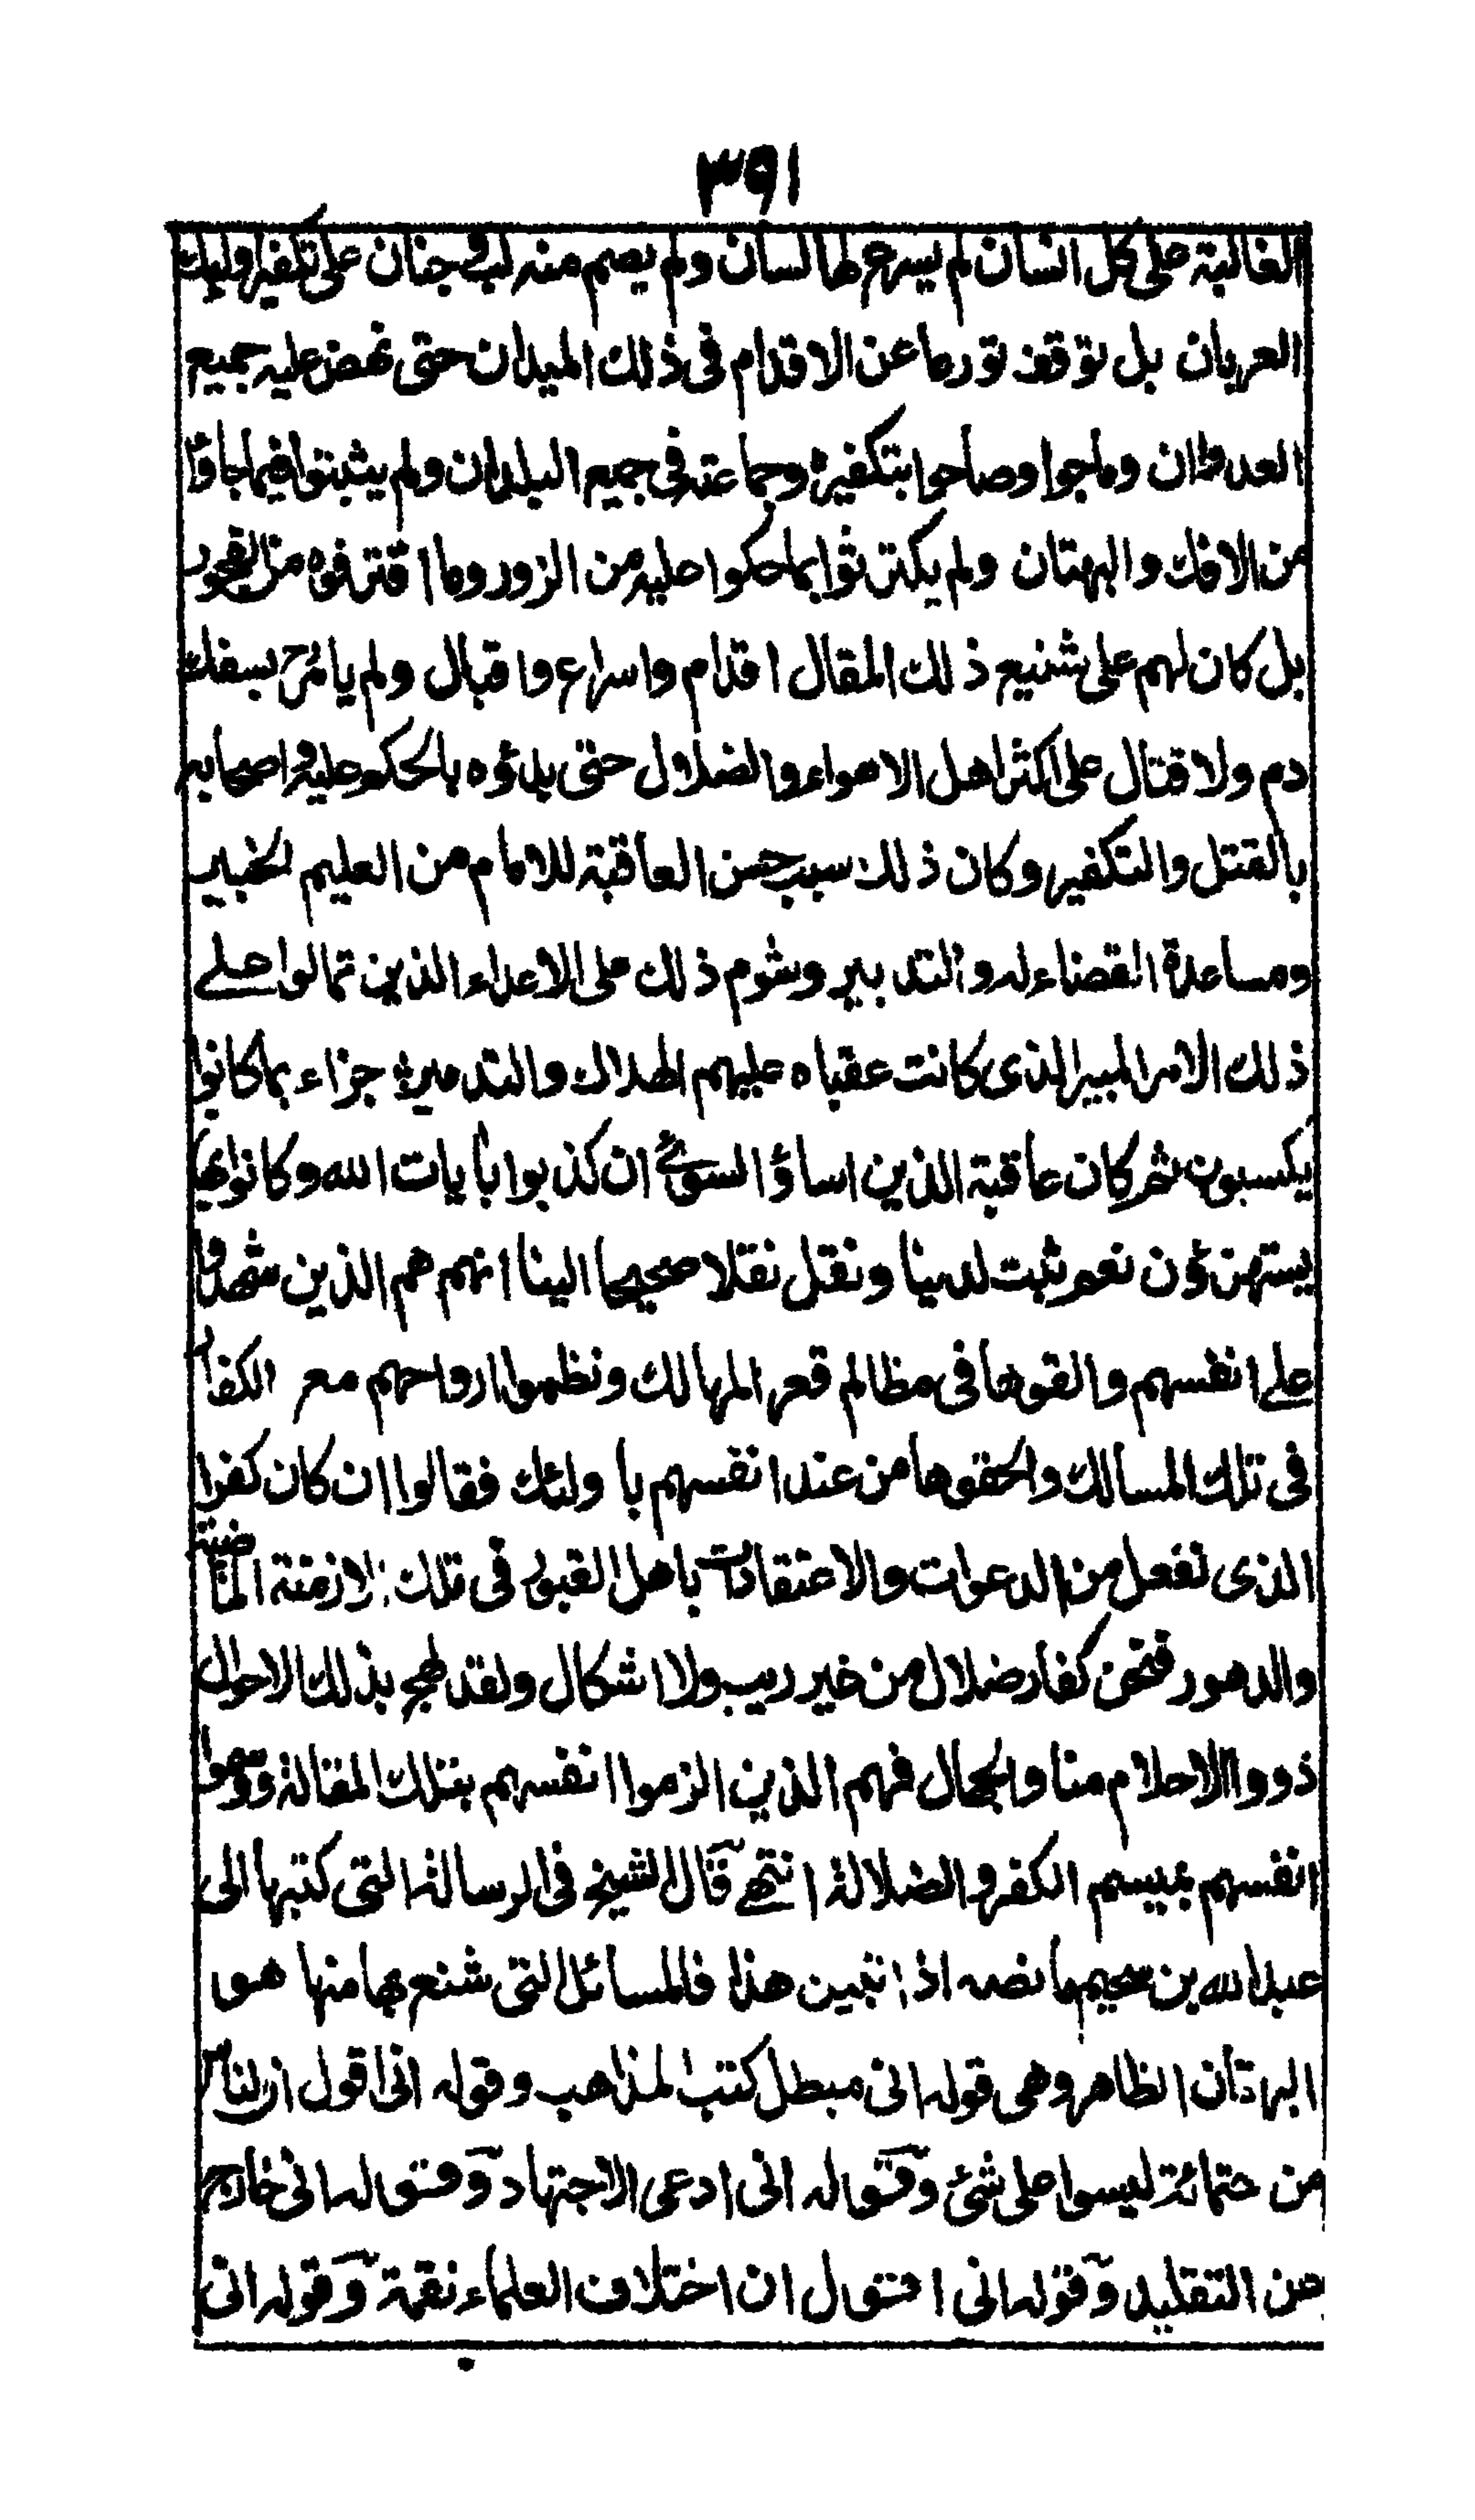 ٣٩١
الغالبة على كل انسان لم يسرع لها لسان ولم يصم منه لب في جنان على تكفير اولئك
العربان بل توقف تورعا عن الاقدام في ذلك الميدان حتى نهض عليه جميع
العدوان وماجوا وصاحوا بتكفيره وجماعته في جميع البلدان ولم يثبتوا فيما جاؤا
من الافك والبهتان ولم يكترثوا بما حكموا عليه من الزور وما اقترفوه من الفجور
بل كان لهم على شنيع ذلك المقال اقدام واسراع واقبال ولم يامر ح بسفك
دم ولا قتال على اكثر اهل الاهواء والضلال حتى بدؤه بالحكم عليه واصحابه
بالقتل والتكفير وكان ذلك سبب حسن العاقبة للامام من العليم الخبير
ومساعدة القضاء له والتدبير وشوم ذلك على الاعداء الذين تمالوا على
ذلك الامر المبير الذي كانت عقباه عليهم الهلاك والتدمير جزاء بما كانوا
يكسبون ثم كان عاقبة الذين اساؤا السوئ ان كذبوا بأيات الله وكانوا بها
يستهزؤن نعم ثبت لدينا ونقل نقلا صحيحا الينا انهم هم الذين شهدوا
على انفسهم والقوها في مظالم قعر المهالك ونظموا ارواحهم مع الكفار
في تلك المسالك والحقوها من عند انفسهم با ولئك فقالوا ان كان كفرا
الذي نفعل من الدعوات والاعتقادات باهل القبور في تلك الازمنة الماضية
والدهور فنحن كفار ضلال من غير ريب ولا اشكال ولقد لهج بذلك الاحوال
ذووا الاحلام منا والجهال فهم الذين الزموا انفسهم بتلك المقالة ووسموا
انفسهم بميسم الكفر والضلالة انتهى قال الشيخ في الرسالة التي كتبها الى
عبد الله بن سحيم ما نصه اذا تبين هذا فالمسائل التي شنع بها منها هو
البهتان الظاهر وهي قوله اني مبطل كتب المذاهب وقوله اني اقول ان الناس
من ستمائة ليسوا على شئ وقوله اني ادعى الاجتهاد وقوله اني خارج
عن التقليد وقوله اني اقول ان اختلاف العلماء نقمة وقوله اني